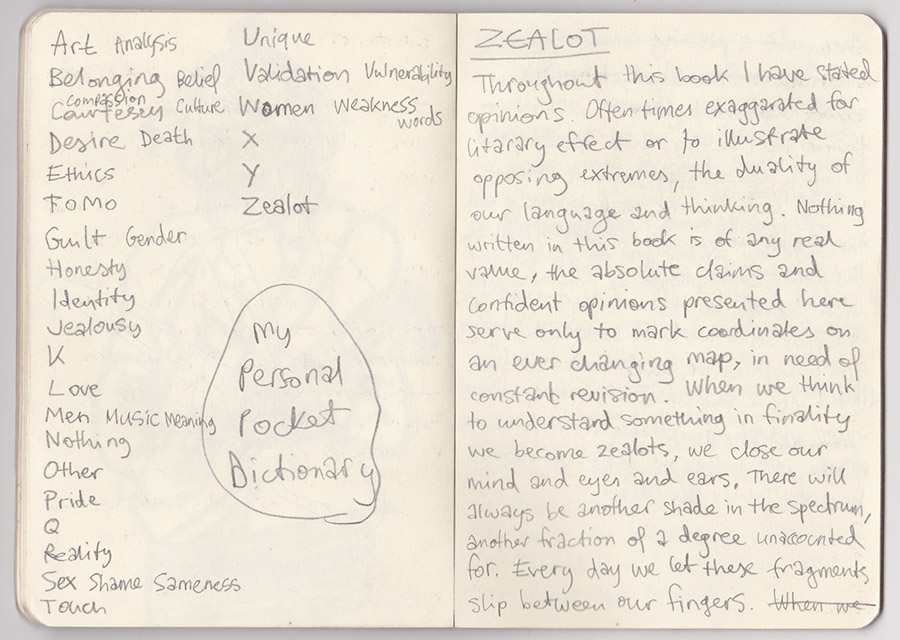 Art Analysis
Belonging Belief
compassion
Courtesey Culture
Desire Death
Ethics
FOMO
Guilt Gender
Honesty
Identity
Jealousy
K
Love
Men Music Meaning
Nothing
Other
Pride
Q
Reality
Sex Shame Sameness
Touch
Unique
Validation Vulnerability
Women Weakness
words
X
Y
Zealot
My
Personal
Pocket
Dictionary
ZEALOT
Throughout this book I have stated
opinions. Often times exaggarated for
litarary effect or to illustrate
opposing extremes, the duality of
our language and thinking. Nothing
written in this book is of any real
value, the absolute claims and
confident opinions presented here
serve only to mark coordinates on
an ever changing map, in need of
constant revision. When we think
to understand something in finality
we become zealots, we close our
mind and eyes and ears. There will
always be another shade in the spectrum,
another fraction of a degree unaccounted
for. Every day we let these fragments
slip between our fingers. When we